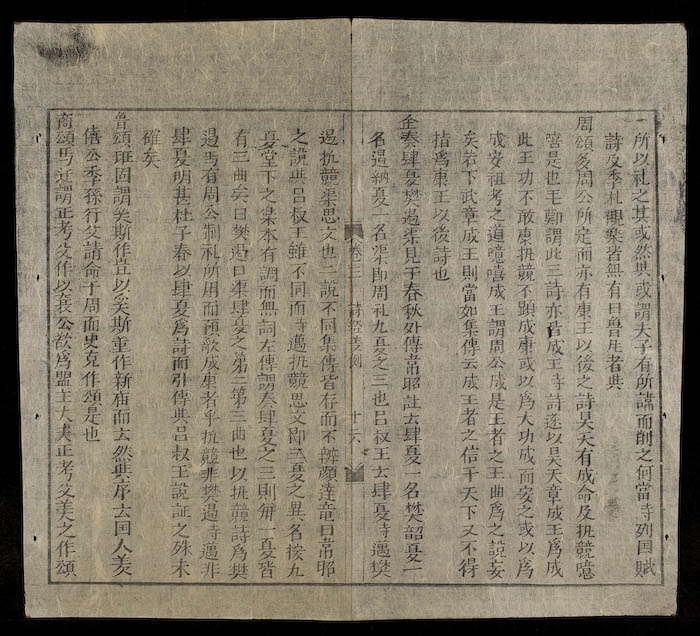 所以礼之其或然与或謂夫子有所諱而削之何當時列国賦
詩及季札觀樂皆無有曰魯者与
周頌多周公所定而亦有康王以後之詩昊天有成命及执競噫
嘻是也毛鄭謂此三詩亦皆成王時詩遂以昊天章成王爲成
此王功不敢康执競不顕成康或以爲大功成而安之或以爲
成安祖考之道噫嘻成王謂周公成是王者之王曲爲之說妄
矣若下武章成王則當如集傳云成王者之信于天下又不得
指爲康王以後詩也
金奏肆夏樊遏渠見于春秋外傳韋昭註云肆夏一名樊韶夏一
名遏納夏一名渠即周礼九夏之三也吕叔王云肆夏時邁樊
卷三 詩経 十六
遏执競渠思文也二說不同集傳皆存而不辨顔達竜曰韋昭
之說与吕叔王雖不同而時邁执競思文即三夏之異名按九
夏堂下之樂本有調而無詞左傳謂奏肆夏之三則每一夏皆
有三曲矣曰樊遏曰渠肆夏之第二第三曲也以执競詩爲樊
遏焉有周公制礼所用而預歌成康者乎执競非樊遏時邁非
肆夏明甚杜子春以肆夏爲詩而引傳与吕叔王說証之殊未
確矣
魯頌班固謂奚斯作豈以奚斯董作新庙而云然与序云国人美
僖公季孫行父請命于周而史克作頌是也
商頌馬迁謂正考父作以襄公欲爲盟主大夫正考父美之作頌